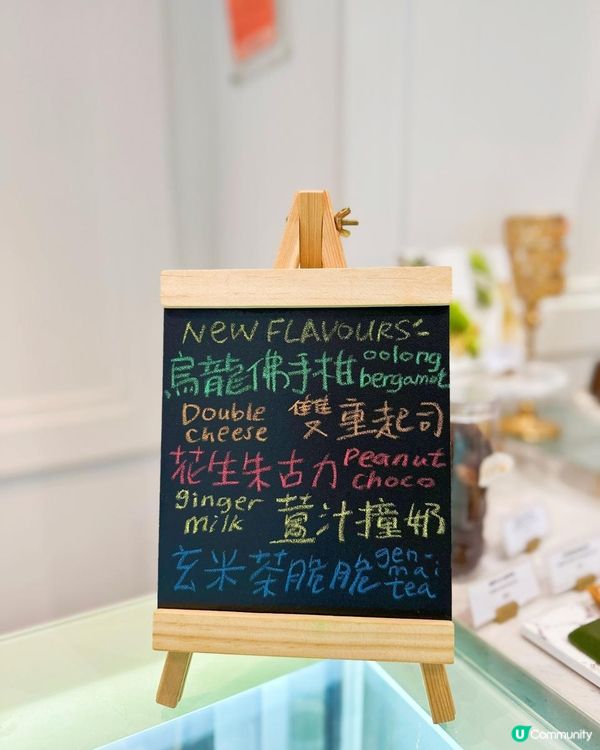 NEW FLAVOURS:
烏龍佛手柑 oolong bergamot
Double cheese 雙重起司
花生朱古力 Peanut choco
ginger milk 薑汁撞奶
玄米茶脆脆 gen-mai tea
U Community